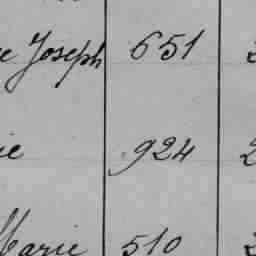 Joseph 651
924
Marie 510